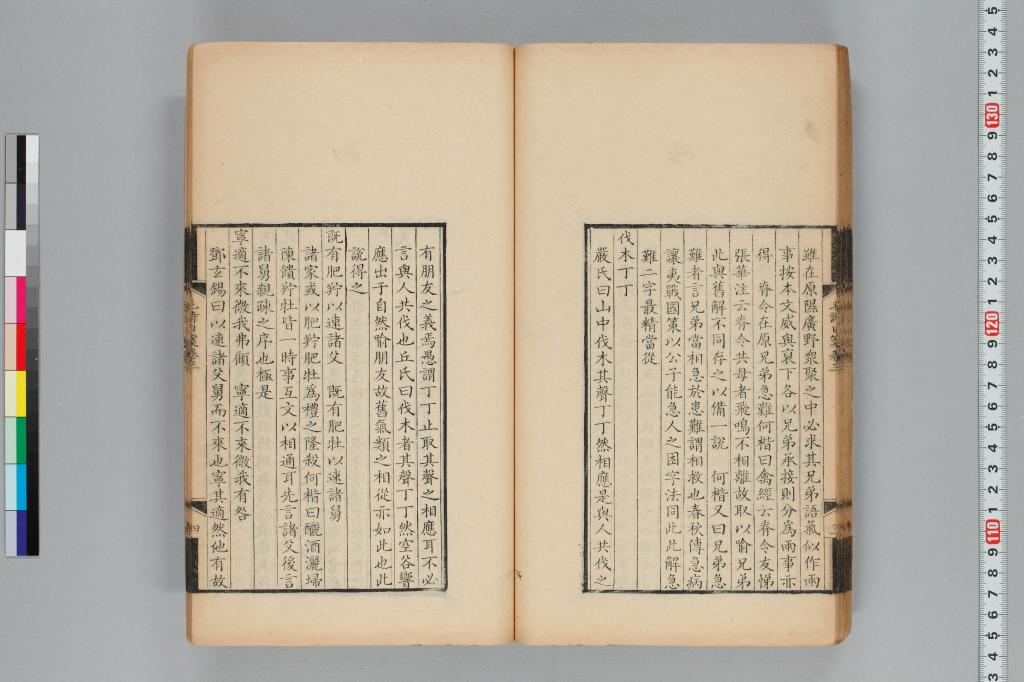 雖在原隰廣野衆聚之中必求其兄弟語氣似作兩
事按本文威與裒下各以兄弟承接則分爲兩事亦
得 脊令在原兄弟急難何楷曰禽經云脊令友悌
張華注云脊令共母者飛鳴不相離故取以喻兄弟
此與舊解不同存之以備一說 何楷又曰兄弟急
難者言兄弟當相急於患難謂相救也春秋傳急病
讓夷戰國策以公子能急人之困字法同此此解急
難二字最精當從
伐木丁丁
嚴氏曰山中伐木其聲丁丁然相應是與人共伐之
有朋友之義焉愚謂丁丁止取其聲之相應耳不必
言與人共伐也丘氏曰伐木者其聲丁丁然空谷響
應出于自然喻朋友故舊氣類之相從亦如此也此
說得之
既有肥羜以速諸父 既有肥牡以速諸舅
諸家或以肥羜肥牡爲禮之隆殺何楷曰釃酒灑埽
陳饋羜牡皆一時事互文以相通耳先言諸父後言
諸舅親疎之序也極是
寧適不來微我弗顧 寧適不來微我有咎
鄧玄錫曰以速諸父舅而不來也寧其適然他有故
四
5
4
3
2
1
130
9
8
7
6
5
4
3
2
1
120
9
8
7
6
5
4
3
2
1
110
9
8
7
6
5
4
3